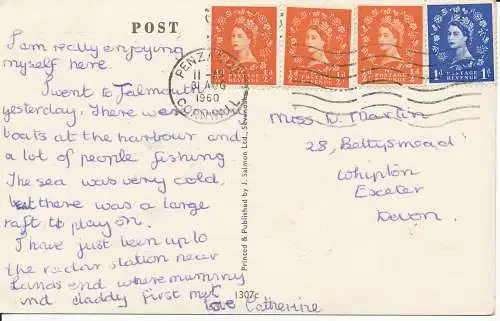 POST
I am really enjoying
myself here.
I went to Falmouth
yesterday. There were
boats at the harbour and
a lot of people fishing.
The sea was very cold,
but there was a large
raft to play on.
I have just been up to
the radar station near
Lands end where mummy
and daddy first met
love Catherine
1307c
Printed & Published by J. Salmon Ltd., Sevenoaks
PENZANCE
11-
31 AUG
1960
CORNWALL
½d POSTAGE REVENUE ½d
½d POSTAGE REVENUE ½d
½d POSTAGE REVENUE ½d
1d POSTAGE REVENUE 1d
Miss D. Martin
28, Bettysmead
Whipton
Exeter
Devon.